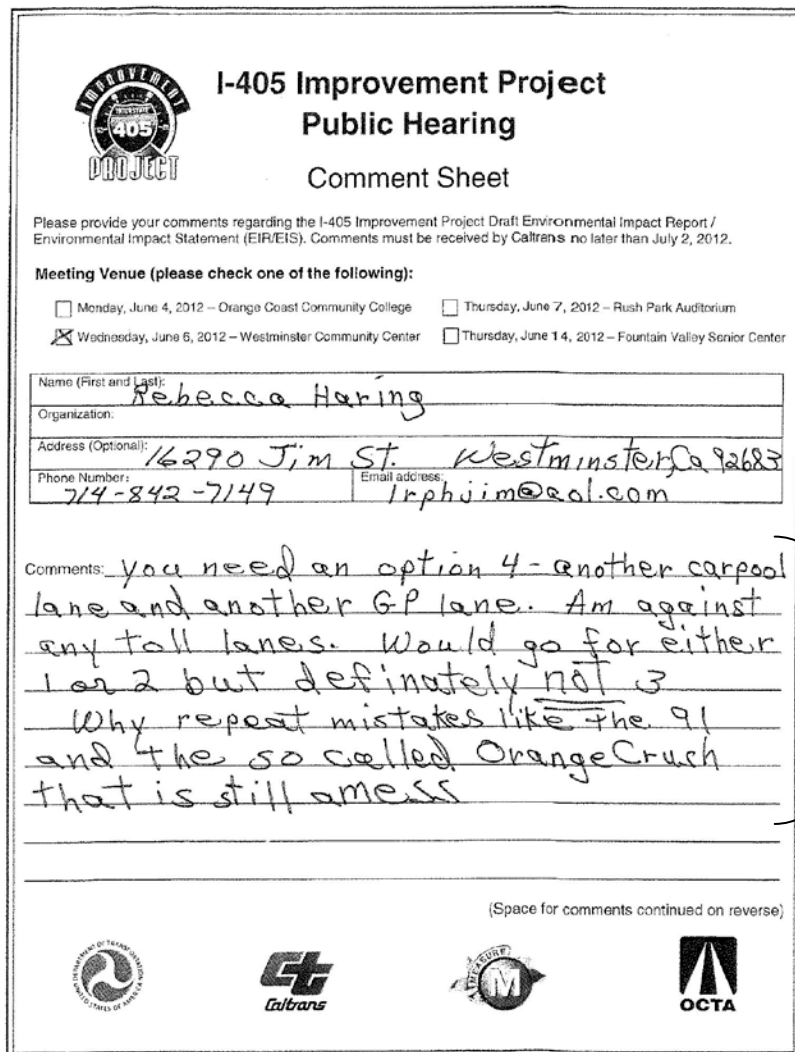 IMPROVEMENT
INTERSTATE
405
PROJECT
I-405 Improvement Project
Public Hearing
Comment Sheet
Please provide your comments regarding the I-405 Improvement Project Draft Environmental Impact Report /
Environmental Impact Statement (EIR/EIS). Comments must be received by Caltrans no later than July 2, 2012.
Meeting Venue (please check one of the following):
Monday, June 4, 2012 – Orange Coast Community College
Thursday, June 7, 2012 – Rush Park Auditorium
Wednesday, June 6, 2012 – Westminster Community Center
Thursday, June 14, 2012 – Fountain Valley Senior Center
Name (First and Last): Rebecca Haring
Organization:
Address (Optional): 16290 Jim St. Westminster, Ca 92683
Phone Number: 714-842-7149
Email address: lrphjim@aol.com
Comments: you need an option 4 - another carpool
lane and another GP lane. Am against
any toll lanes. Would go for either
1 or 2 but definately not 3
Why repeat mistakes like the 91
and the so called OrangeCrush
that is still amess
(Space for comments continued on reverse)
DEPARTMENT OF TRANSPORTATION
UNITED STATES OF AMERICA
Caltrans
MEASURE
M
OCTA